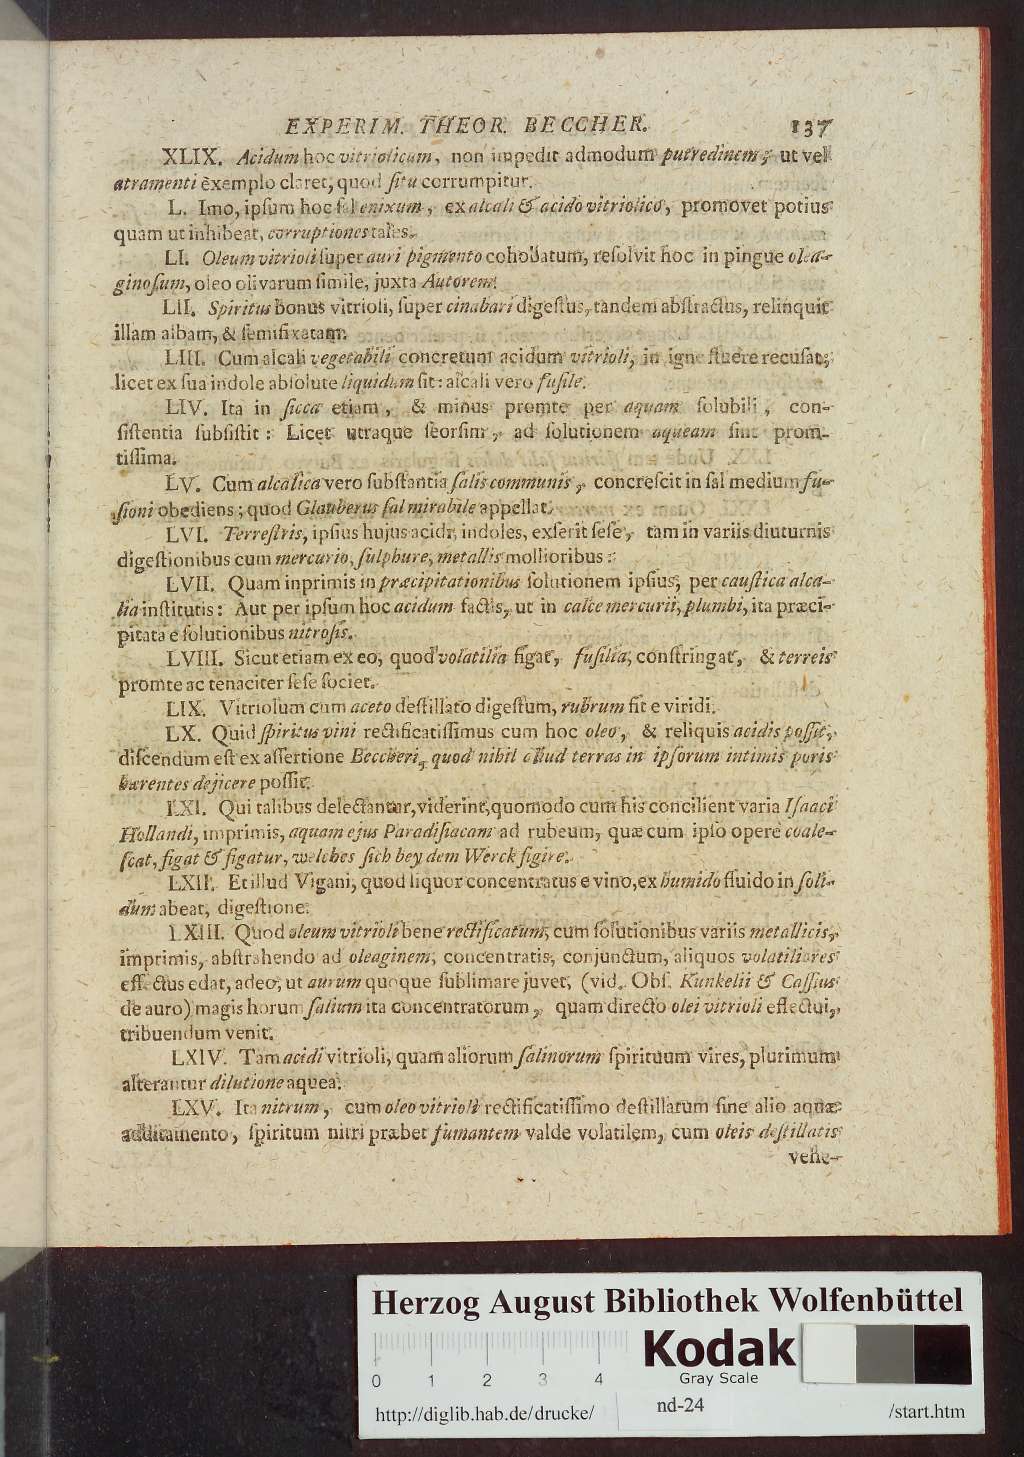 EXPERIM. THEOR. BECCHER. 137
XLIX. Acidum hoc vitriolicum, non impedit admodum putredinem; ut vel
atramenti exemplo claret, quod ſitu corrumpitur.
L. Imo, ipſum hoc ſal enixum, ex alcali & acido vitriolico, promovet potius
quam ut inhibeat, corruptiones tales.
LI. Oleum vitrioli ſuper auri pigmento cohobatum, reſolvit hoc in pingue olea-
ginoſum, oleo olivarum ſimile, juxta Autorem.
LII. Spiritus bonus vitrioli, ſuper cinabari digeſtus, tandem abſtractus, relinquit
illam albam, & ſemifixatam.
LIII. Cum alcali vegetabili concretum acidum vitrioli, in igne fluere recuſat;
licet ex ſua indole abſolute liquidum ſit: alcali vero fuſile.
LIV. Ita in ſicca etiam, & minus promte per aquam ſolubili, con-
ſiſtentia ſubſiſtit: Licet utraque ſeorſim, ad ſolutionem aqueam ſint prom-
tiſſima.
LV. Cum alcalica vero ſubſtantia ſalis communis, concreſcit in ſal medium fu-
ſioni obediens; quod Glauberus ſal mirabile appellat.
LVI. Terreſtris, ipſius hujus acidi, indoles, exſerit ſeſe, tam in variis diuturnis
digeſtionibus cum mercurio, ſulphure, metallis mollioribus:
LVII. Quam inprimis in præcipitationibus ſolutionem ipſius, per cauſtica alca-
lia inſtitutis: Aut per ipſum hoc acidum factis, ut in calce mercurii, plumbi, ita præci-
pitata e ſolutionibus nitroſis.
LVIII. Sicut etiam ex eo, quod volatilia figat, fuſilia, conſtringat, & terreis
promte ac tenaciter ſeſe ſociet.
LIX. Vitriolum cum aceto deſtillato digeſtum, rubrum fit e viridi.
LX. Quid ſpiritus vini rectificatiſſimus cum hoc oleo, & reliquis acidis poſſit,
diſcendum eſt ex aſſertione Beccheri, quod nihil aliud terras in ipſorum intimis poris
hærentes dejicere poſſit.
LXI. Qui talibus delectantur, viderint, quomodo cum his concilient varia Iſaaci
Hollandi, imprimis, aquam ejus Paradiſiacam ad rubeum, quæ cum ipſo opere coale-
ſcat, figat & figatur, welches ſich bey dem Werck figire.
LXII. Et illud Vigani, quod liquor concentratus e vino, ex humido fluido in ſoli-
dum abeat, digeſtione.
LXIII. Quod oleum vitrioli bene rectificatum, cum ſolutionibus variis metallicis,
imprimis, abſtrahendo ad oleaginem, concentratis, conjunctum, aliquos volatiliores
effectus edat, adeo, ut aurum quoque ſublimare juvet, (vid. Obſ. Kunkelii & Caſſius
de auro) magis horum ſalium ita concentratorum, quam directo olei vitrioli effectui,
tribuendum venit.
LXIV. Tam acidi vitrioli, quam aliorum ſalinorum ſpirituum vires, plurimum
alterantur dilutione aquea.
LXV. Ita nitrum, cum oleo vitrioli rectificatiſſimo deſtillatum ſine alio aquæ
additamento, ſpiritum nitri præbet fumantem valde volatilem, cum oleis deſtillatis
Herzog August Bibliothek Wolfenbüttel
Kodak
Gray Scale
0 1 2 3 4
http://diglib.hab.de/drucke/ nd-24 /start.htm